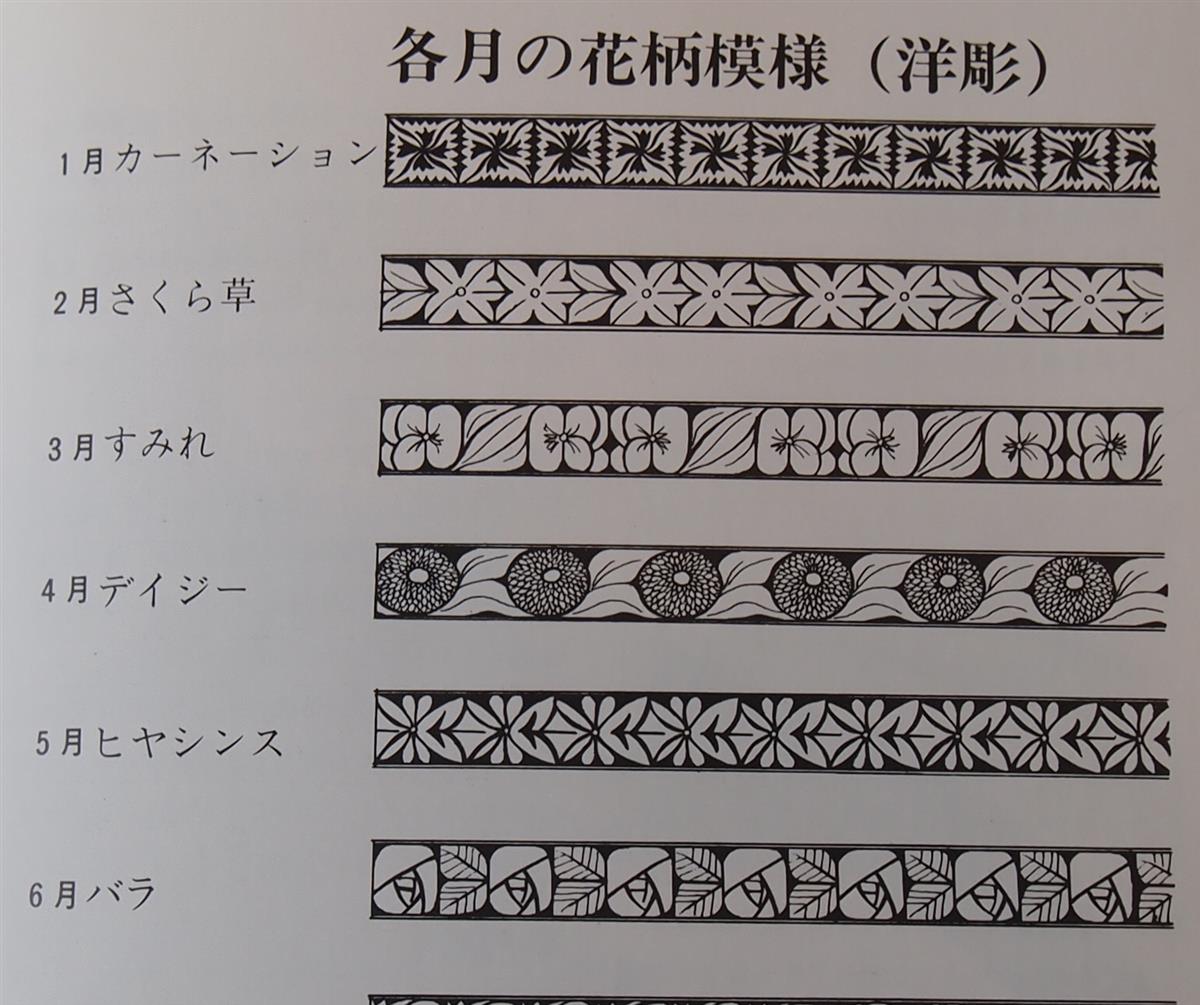 各月の花柄模様（洋彫）
1月カーネーション
2月さくら草
3月すみれ
4月デイジー
5月ヒヤシンス
6月バラ